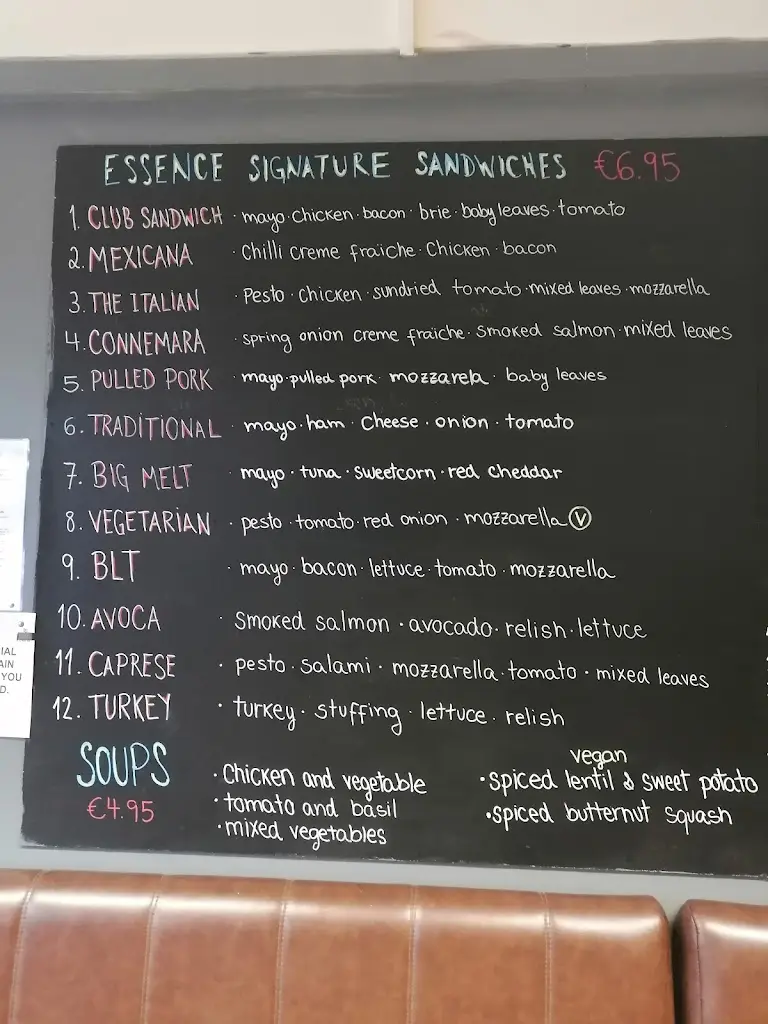 ESSENCE SIGNATURE SANDWICHES €6.95
1. CLUB SANDWICH · mayo · chicken · bacon · brie · baby leaves · tomato
2. MEXICANA · Chilli creme fraiche · Chicken · bacon
3. THE ITALIAN · Pesto · chicken · sundried tomato · mixed leaves · mozzarella
4. CONNEMARA · spring onion creme fraiche · smoked salmon · mixed leaves
5. PULLED PORK · mayo · pulled pork · mozzarela · baby leaves
6. TRADITIONAL · mayo · ham · cheese · onion · tomato
7. BIG MELT · mayo · tuna · sweetcorn · red cheddar
8. VEGETARIAN · pesto · tomato · red onion · mozzarella Ⓥ
9. BLT · mayo · bacon · lettuce · tomato · mozzarella
10. AVOCA · smoked salmon · avocado · relish · lettuce
11. CAPRESE · pesto · salami · mozzarella · tomato · mixed leaves
12. TURKEY · turkey · stuffing · lettuce · relish
SOUPS
€4.95
· Chicken and vegetable
· tomato and basil
· mixed vegetables
vegan
· spiced lentil & sweet potato
· spiced butternut squash
IAL
AIN
YOU
D.